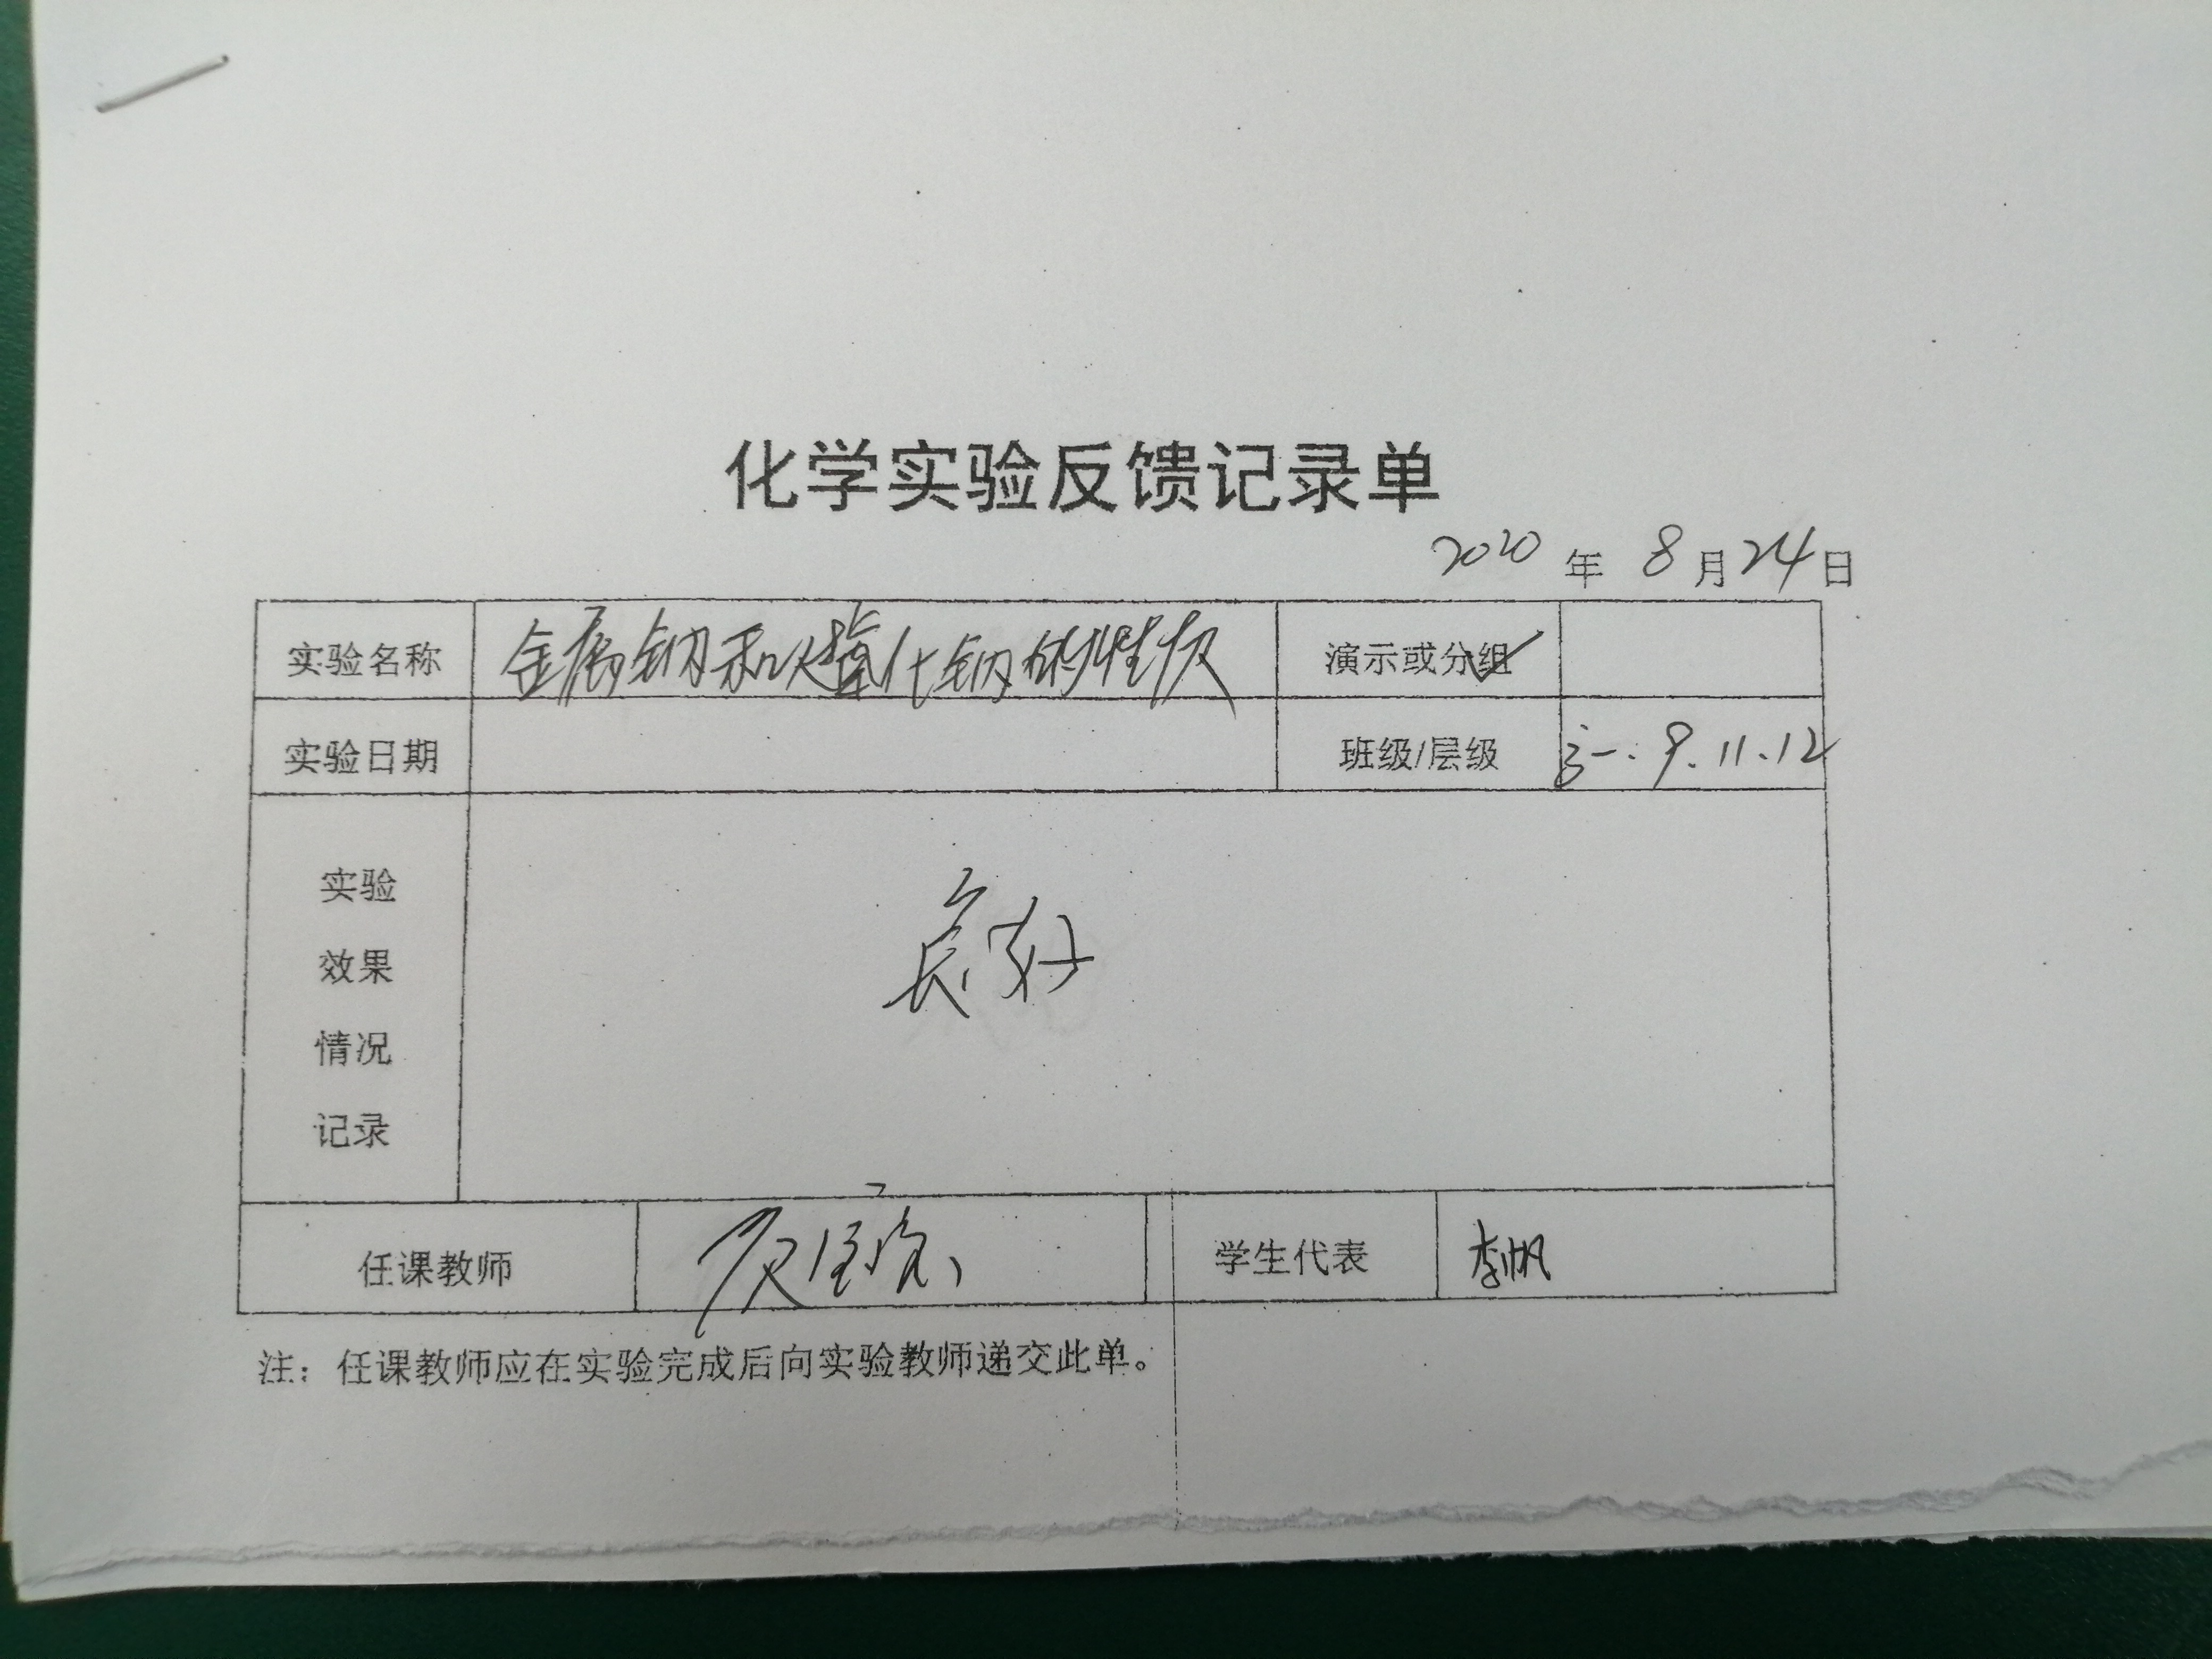 化学实验反馈记录单
2020年8月24日
实验名称 金属钠和过氧化钠的性质 演示或分组 ✓
实验日期 班级/层级 高一.9.11.12
实验
效果
情况
记录
良好
任课教师 学生代表 李帆
注：任课教师应在实验完成后向实验教师递交此单。